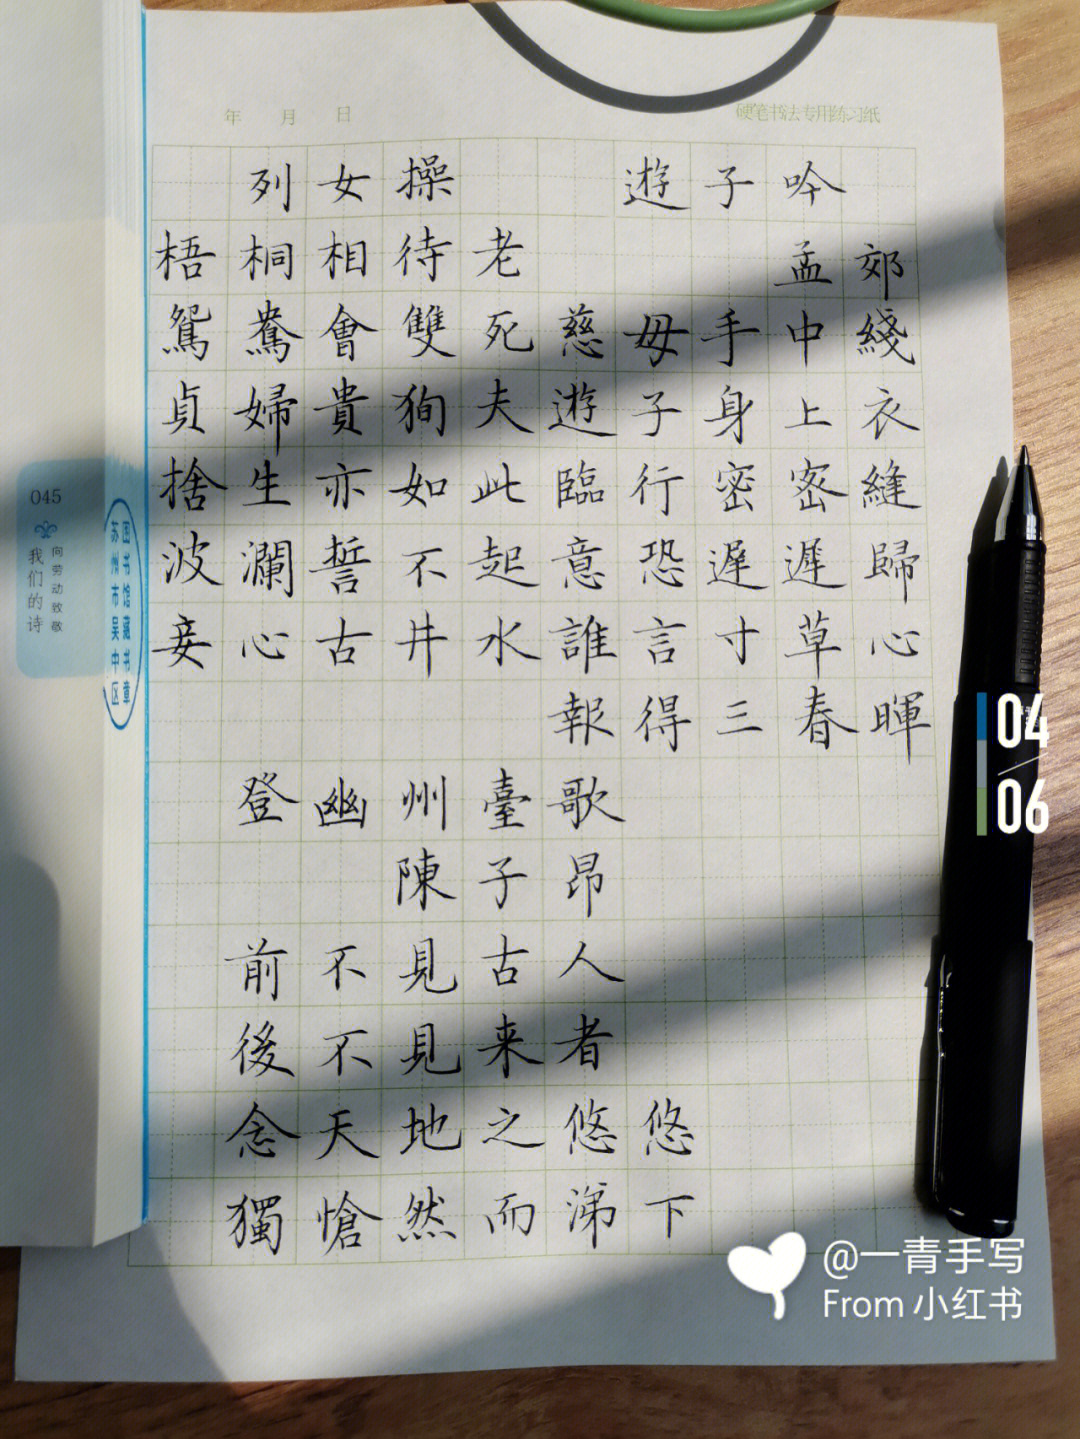 年 月 日
硬笔书法专用练习纸
列女操
梧桐相待老
鴛鴦會雙死
貞婦貴狥夫
捨生亦如此
波瀾誓不起
妾心古井水
遊子吟
孟郊
慈母手中綫
遊子身上衣
臨行密密縫
意恐遲遲歸
誰言寸草心
報得三春暉
登幽州臺歌
陳子昂
前不見古人
後不見来者
念天地之悠悠
獨愴然而涕下
045
我们的诗
向劳动致敬
苏州市吴中区
图书馆藏书章
04
06
@一青手写
From 小红书